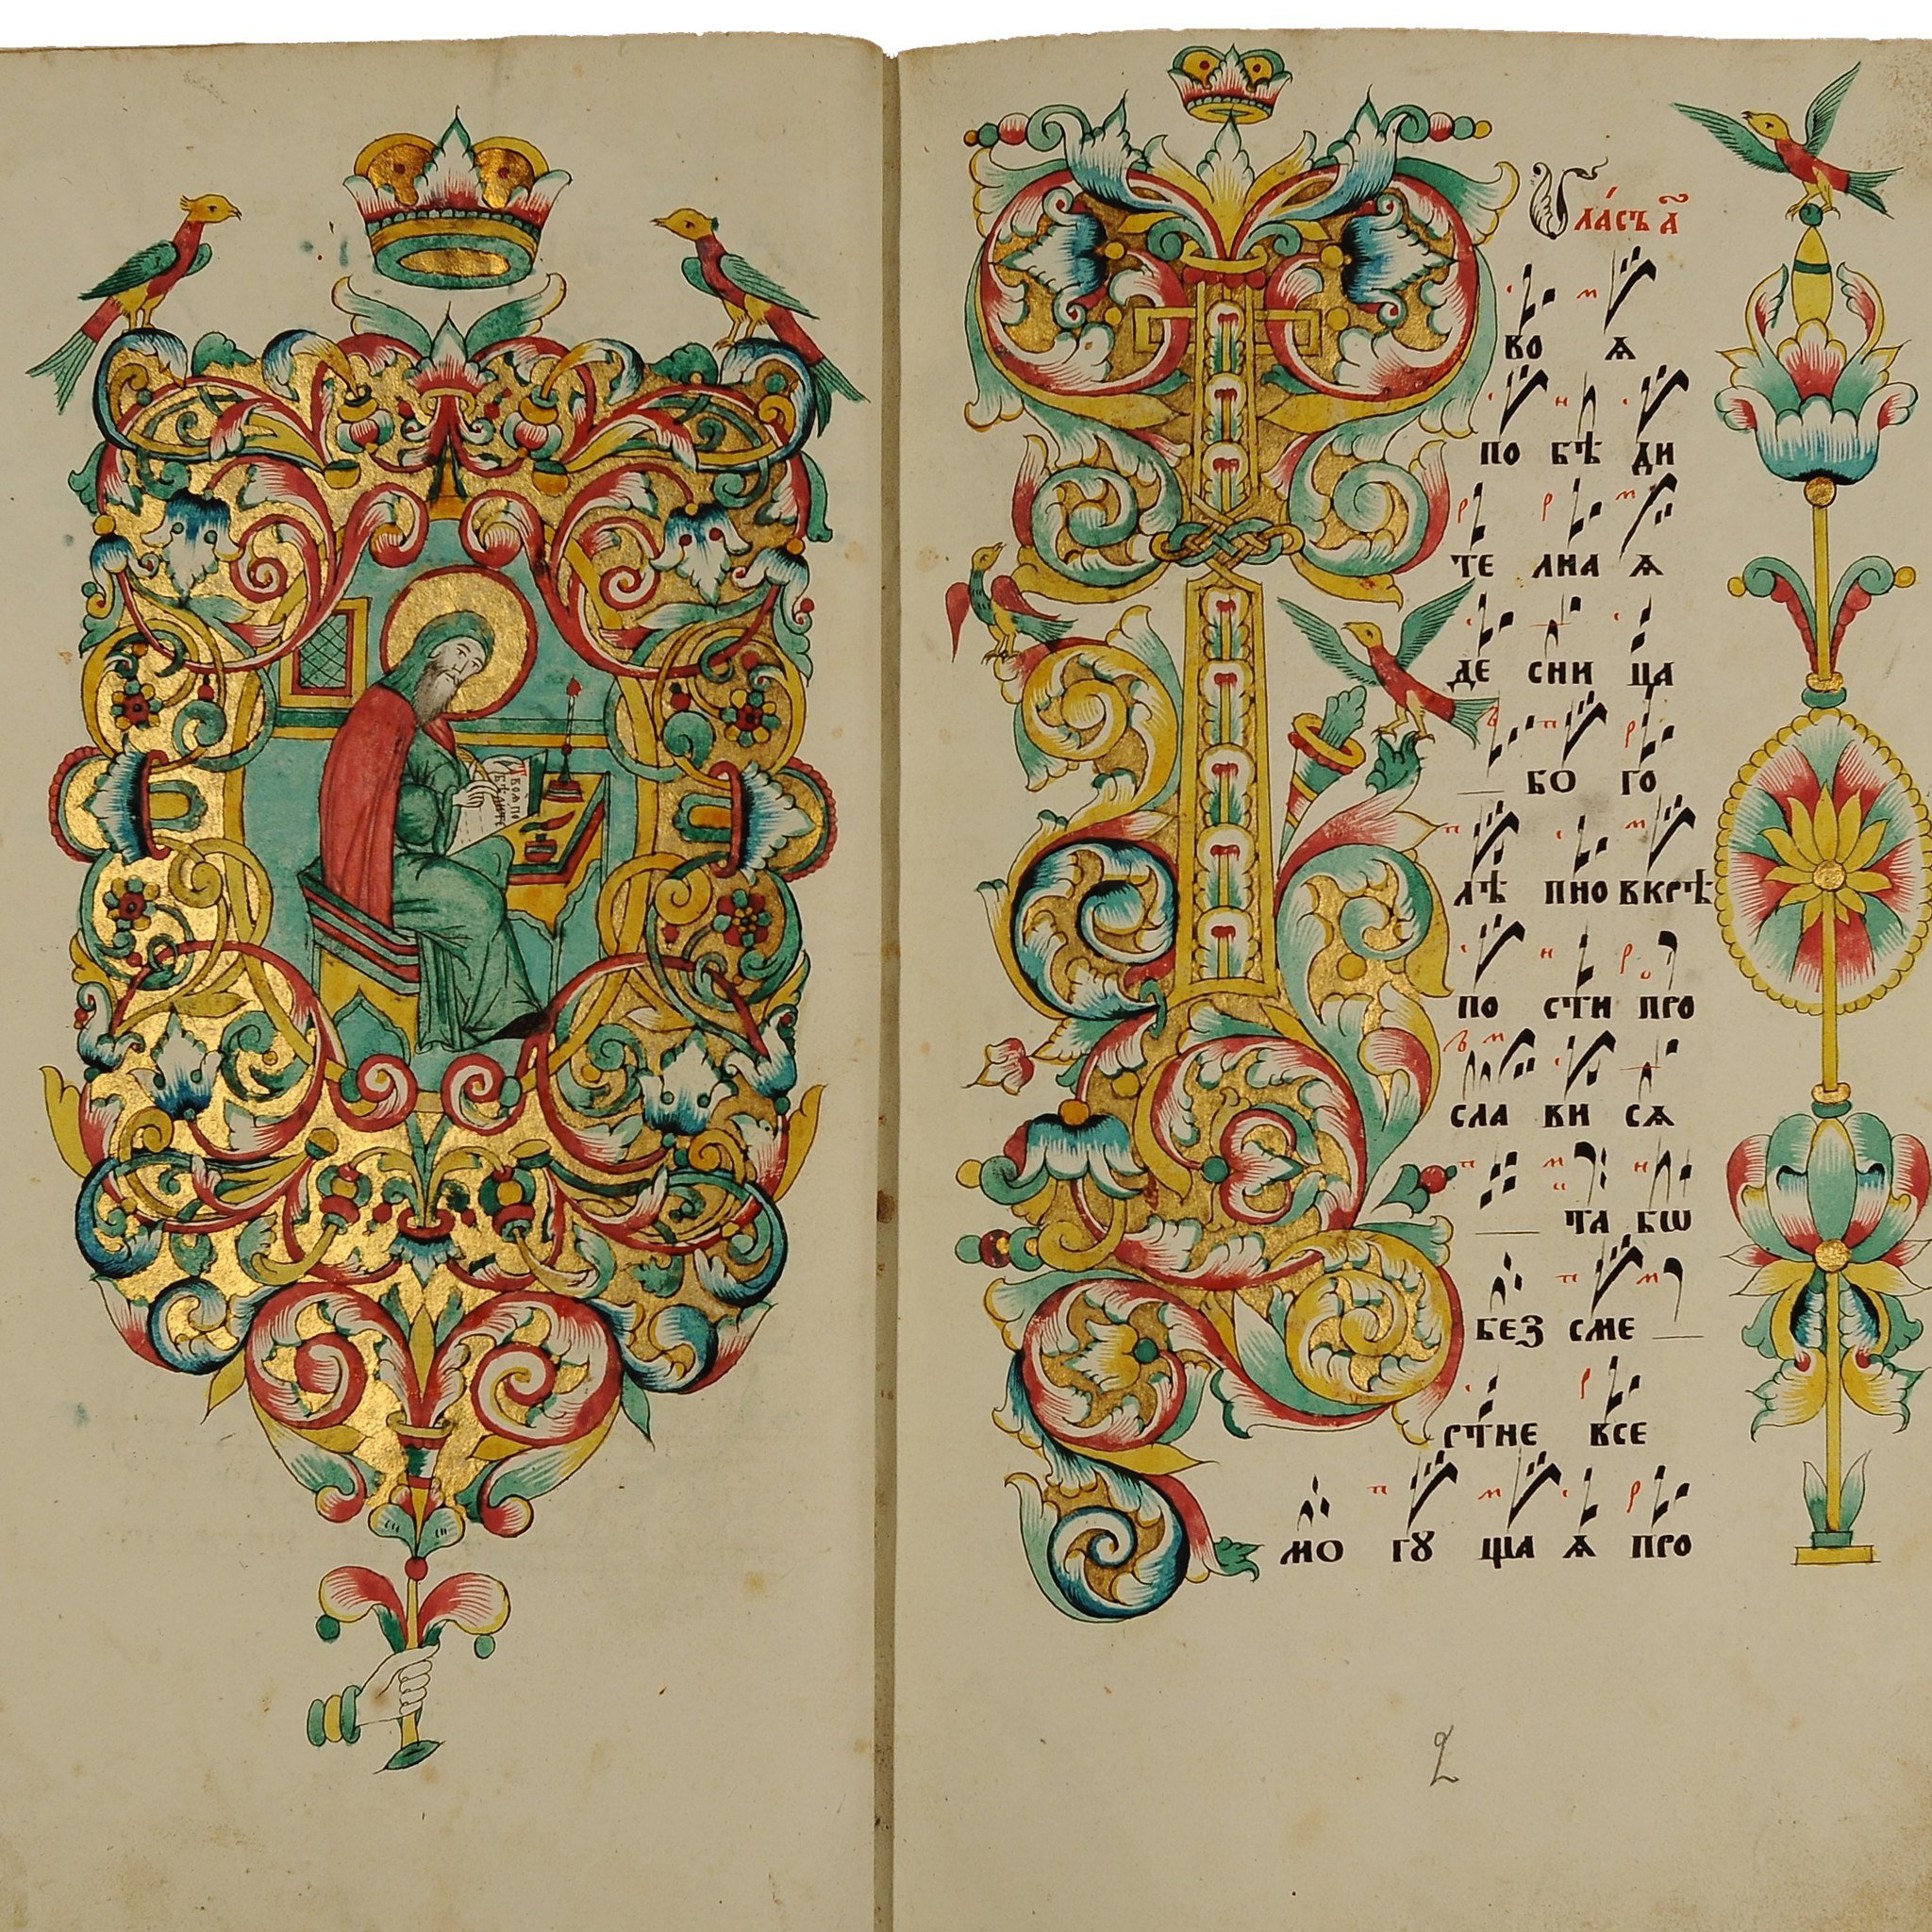 Твоѧ по
бѣдите
Гла́съ а҃
Т во ѧ
по бѣ ди
те лна ѧ
де сни ца
бо го
лѣ пно вкрѣ
по сти про
сла ви сѧ
та бѡ
без сме
ртне все
мо гꙋ ща ѧ про